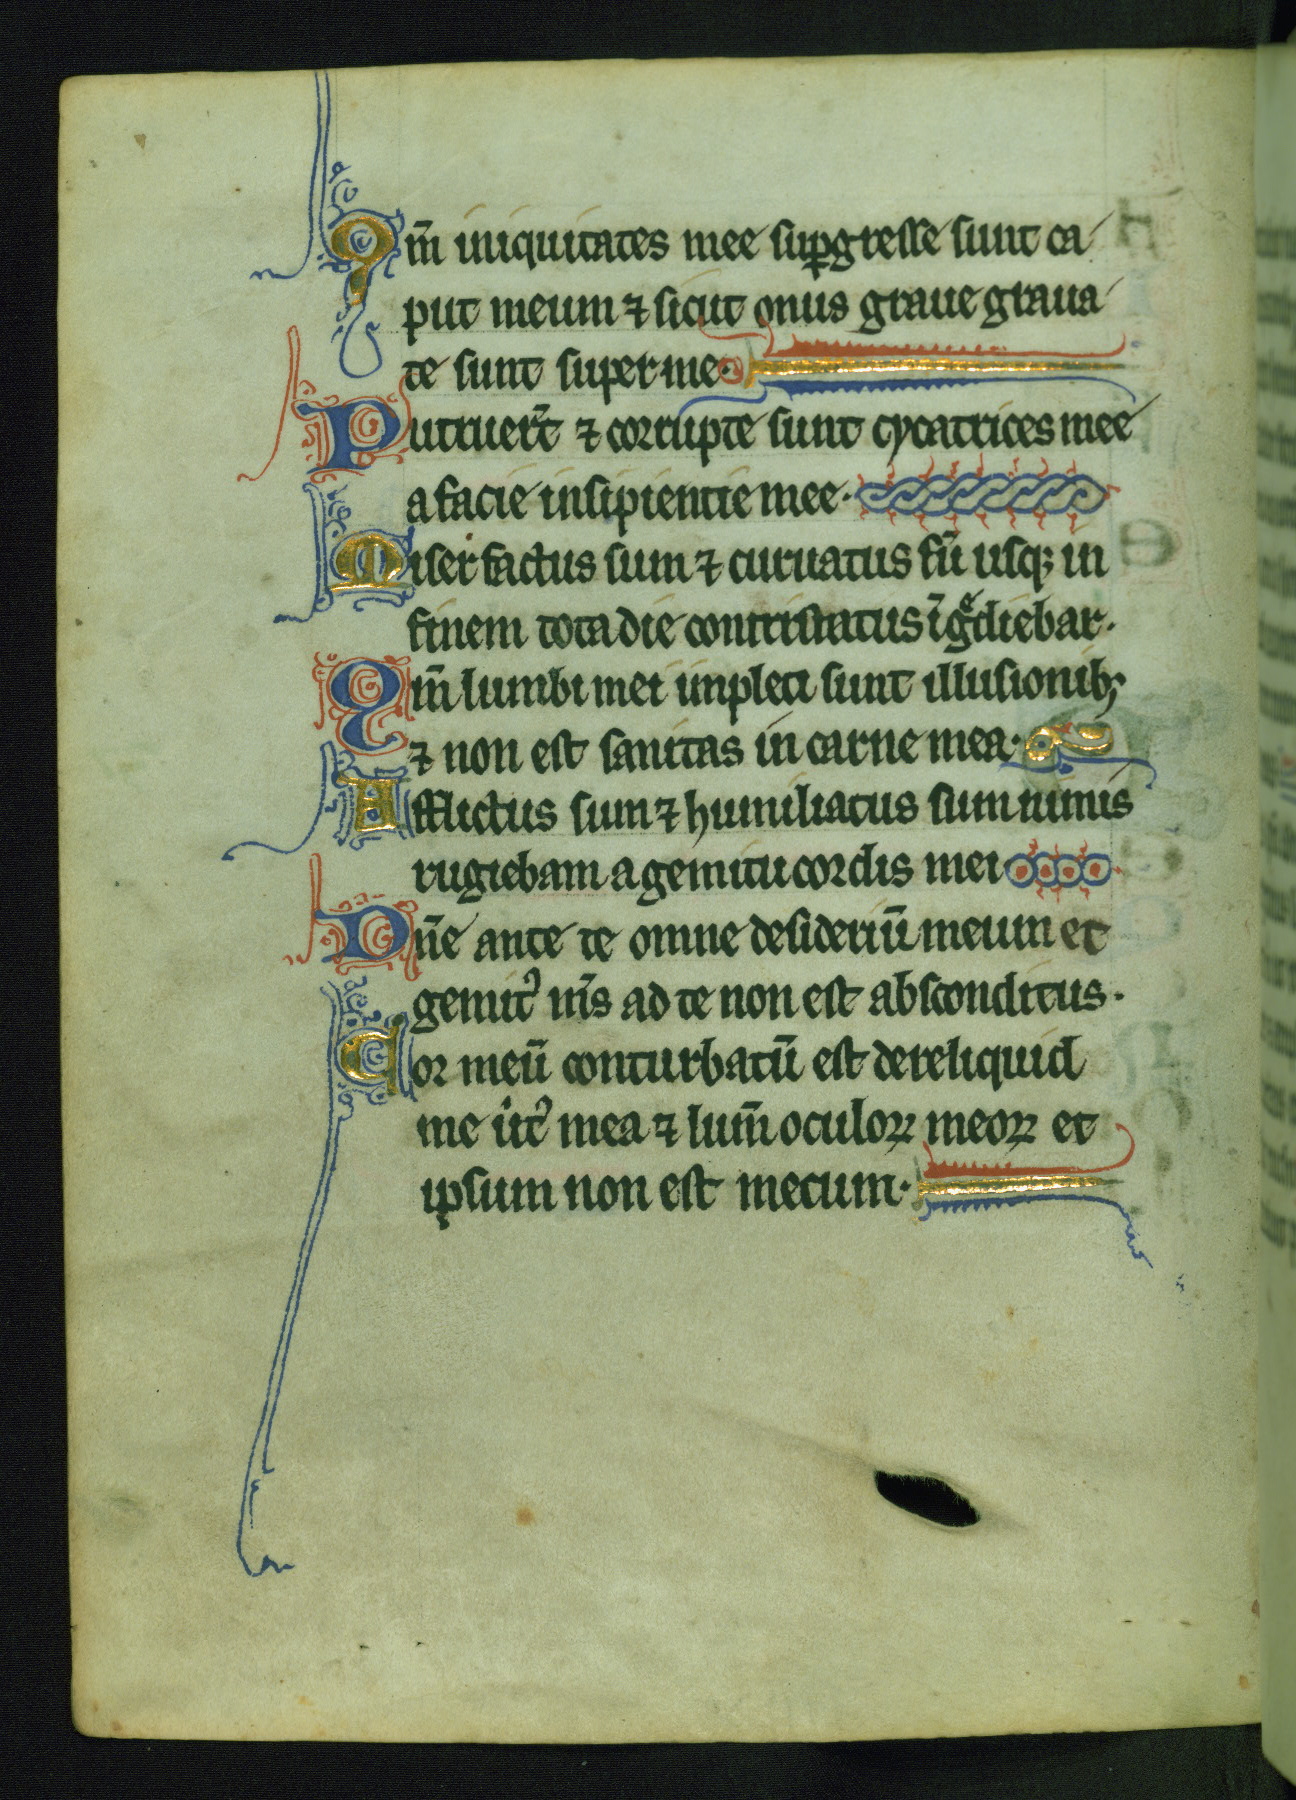 Qm̄ iniquitates mee suꝑgresse sunt ca
put meum ⁊ sicut onus graue graua
te sunt super me·
Putruer̄t ⁊ corrupte sunt cycatrices mee
a facie insipientie mee·
Miser factus sum ⁊ curuatus sū usqꝫ in
finem tota die contristatus īgͤdiebar·
Qm̄ lumbi mei inpleti sunt illusionibꝫ
⁊ non est sanitas in carne mea·
Afflictus sum ⁊ humiliatus sum nimis
rugiebam a gemitu cordis mei
Dn̄e ante te omne desideriū meum et
gemit᾽ m̄s ad te non est absconditus·
Cor meū conturbatū est dereliquid
me uit᾽ mea ⁊ lum̄ oculoꝝ meoꝝ et
ipsum non est mecum·